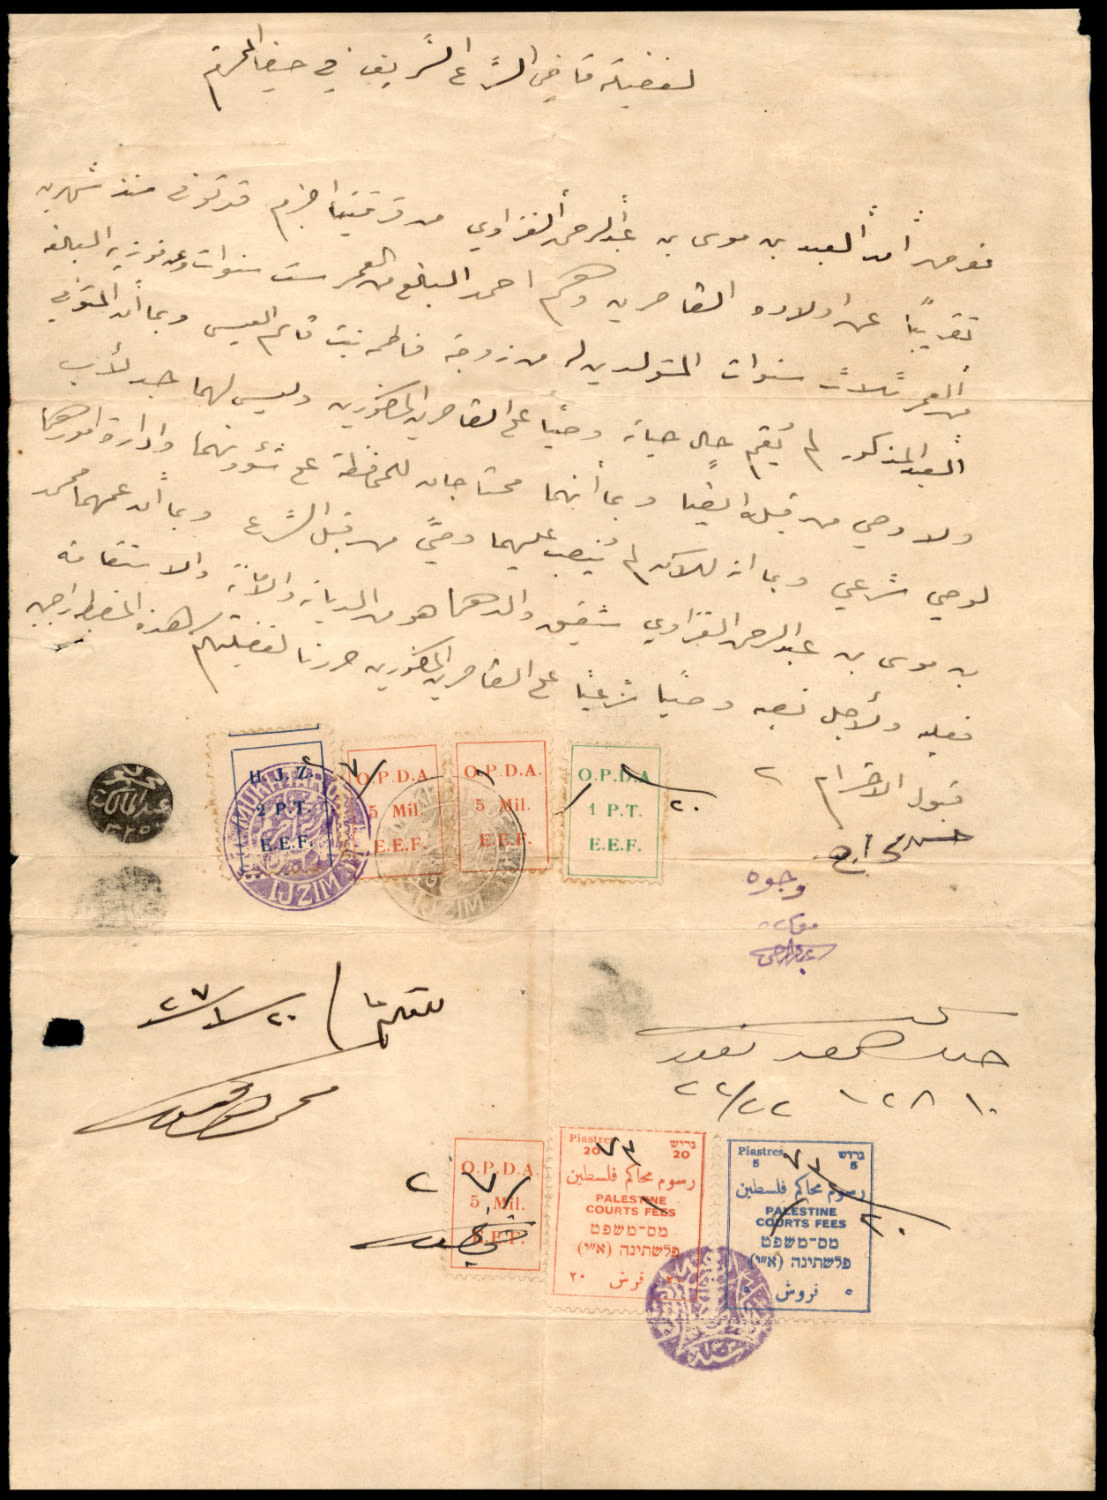 لفضيلة قاضي الشرع الشريف في حيفا المحترم
نعرض أن العبد بن موسى بن عبدالرحمن الغزاوي من قريتنا اجزم قد توفى منذ شهرين
تقريباً عن اولاده القاصرين وهم احمد البالغ من العمر ست سنوات وعن فوزيه البالغة
من العمر ثلاث سنوات المتولدين له من زوجته فاطمه بنت قاسم العيسى وبما أن المتوفي
العبد المذكور لم يُقم حال حياته وصيًا على القاصرين المذكورين وليس لهما جد لأب
ولا وصي من قبله ايضا وبما أنهما محتاجان للمحافظة على شؤونهما وادارة امورهما
لوصي شرعي وبما انه للآن لم يُنصب عليهما وصيٌ من قبل الشرع وبما أن عمهما محمد
بن موسى بن عبدالرحمن الغزاوي شقيق والدهما هو من الديانة والأمانة والاستقامة
فعليه ولأجل نصبه وصيًا شرعيًا على القاصرين المذكورين حررنا لفضيلتكم هذه المضبطة راجين
قبول الاحترام
H.J.Z.
2 P.T.
E.E.F.
O.P.D.A.
5 Mil.
E.E.F.
O.P.D.A.
5 Mil.
E.E.F.
O.P.D.A
1 P.T.
E.E.F.
MUKHTAR
IJZIM
IJZIM
وجوه
٢٧/١/٢٠
O.P.D.A
5 Mil.
E.E.F.
Piastres 20
גרוש 20
رسوم محاكم فلسطين
PALESTINE
COURTS FEES
מס-משפט
פלשתינה (א״י)
٢٠ فرش
Piastres 5
גרוש 5
رسوم محاكم فلسطين
PALESTINE
COURTS FEES
מס-משפט
פלשתינה (א״י)
٥ فروش ٥